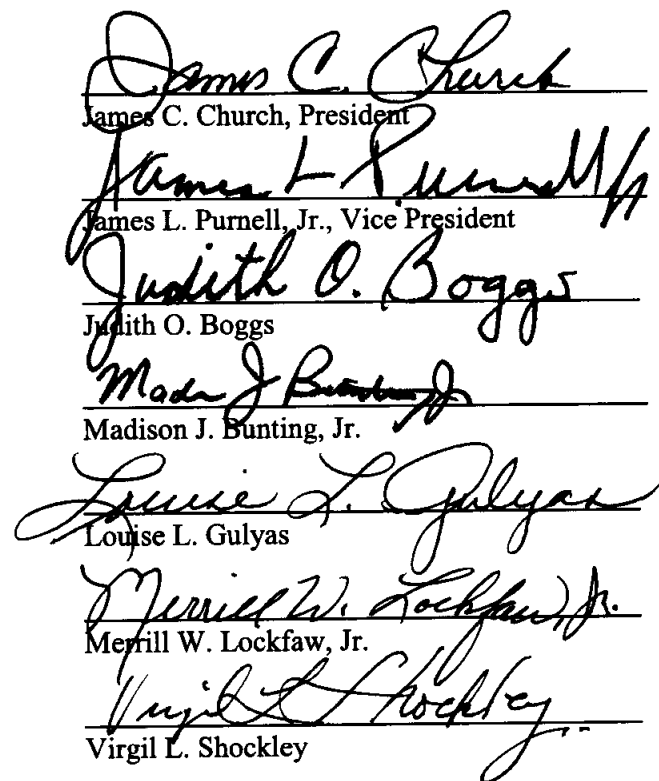 James C. Church
James C. Church, President
James L Purnell Jr
James L. Purnell, Jr., Vice President
Judith O. Boggs
Judith O. Boggs
Madison J Bunting Jr
Madison J. Bunting, Jr.
Louise L. Gulyas
Louise L. Gulyas
Merrill W. Lockfaw, Jr.
Merrill W. Lockfaw, Jr.
Virgil L Shockley
Virgil L. Shockley